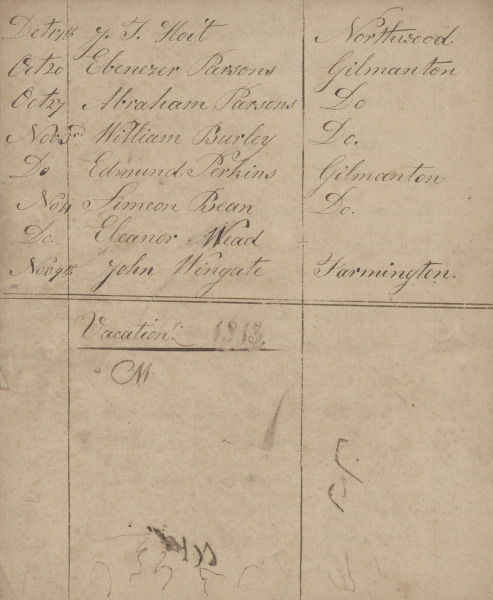 Oct 17th J. T. Hoit Northwood
Oct 20 Ebenezer Parsons Gilmanton
Oct 27 Abraham Parsons Do
Nov 3rd William Burley Do.
Do Edmund Perkins Gilmanton
No 4 Simeon Bean Do.
Do. Eleanor Mead
Nov 9th John Wingate Farmington.
Vacation. 1813
M